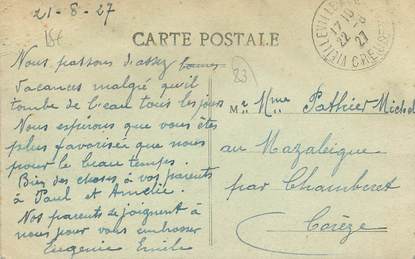 21-8-27
CARTE POSTALE
Nous passons d'assez bonnes
vacances malgré qu'il
tombe de l'eau tous les jours
Nous espérons que vous êtes
plus favorisée que nous
pour le beau temps.
Bien des choses à vos parents
à Paul et Amélie.
Nos parents se joignent à
nous pour vous embrasser
Eugénie Emile
83
22-8
27
CREUSE
Mr Mme Pathier Michel
au Mazaleigue
par Chamberet
Corèze